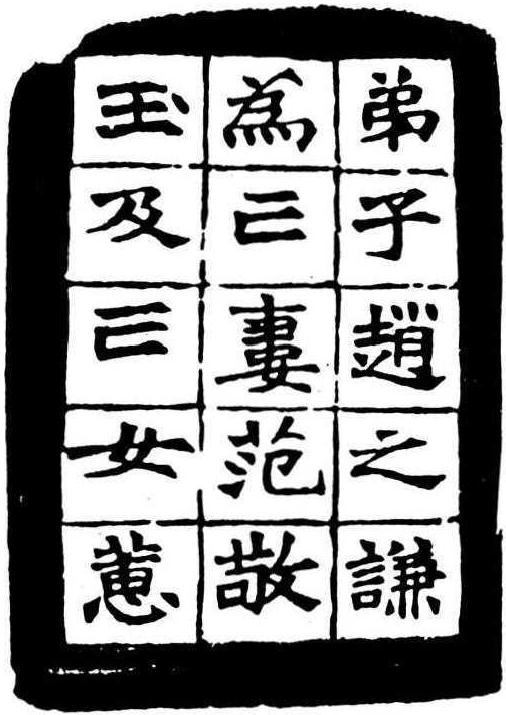 弟子趙之謙
為亡妻范敬
玉及亡女蕙